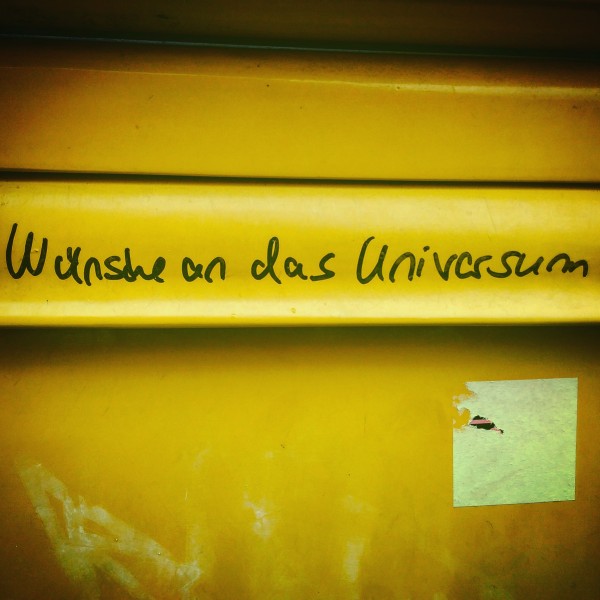 Wünsche an das Universum